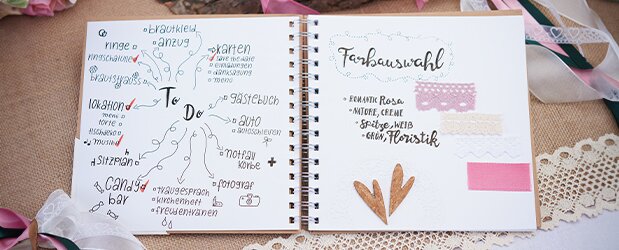 brautkleid
anzug
ringe
ringschatulle
brautstrauss
karten
save the date
einladungen
danksagung
menü
To
Do
lokation
menü
torte
tischdeko
musik
gästebuch
auto
autoschleifen
Sitzplan
notfall
körbe
candy
bar
traugespräch
kirchenheft
freudentränen
fotograf
Farbauswahl
ROMANTIC Rosa
NATURE, CREME
Spitze, WEIß
GRÜN, Floristik